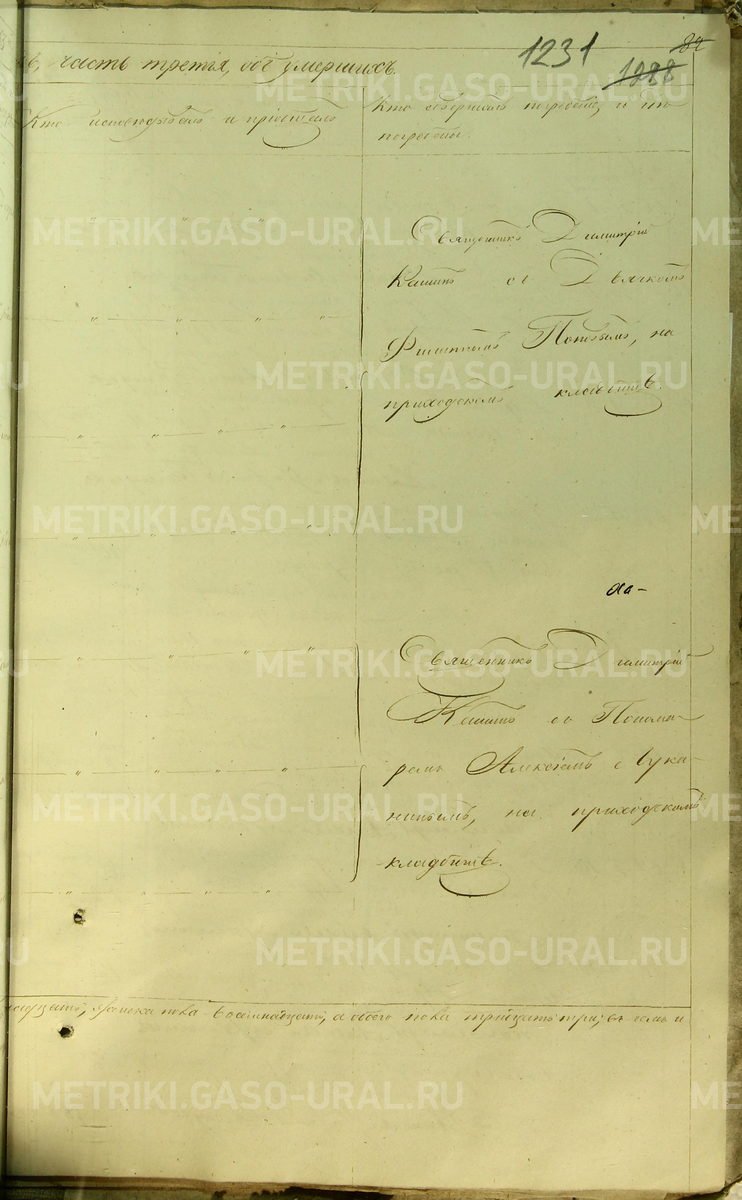 84
1231
1088
часть третія, объ умершихъ.
Кто исповѣдывалъ и пріобщалъ
Кто совершалъ погребеніе, и гдѣ
погребены.
Священникъ Димитрій
Кашинъ съ Дьячкомъ
Филиппомъ Поповымъ, на
приходскомъ кладбищѣ.
Священникъ Димитрій
Кашинъ со Понома-
ремъ Алексѣемъ
на приходскомъ
кладбищѣ.
женска пола восемнадцать, а обоего пола тридцать три; въ семъ и
METRIKI.GASO-URAL.RU